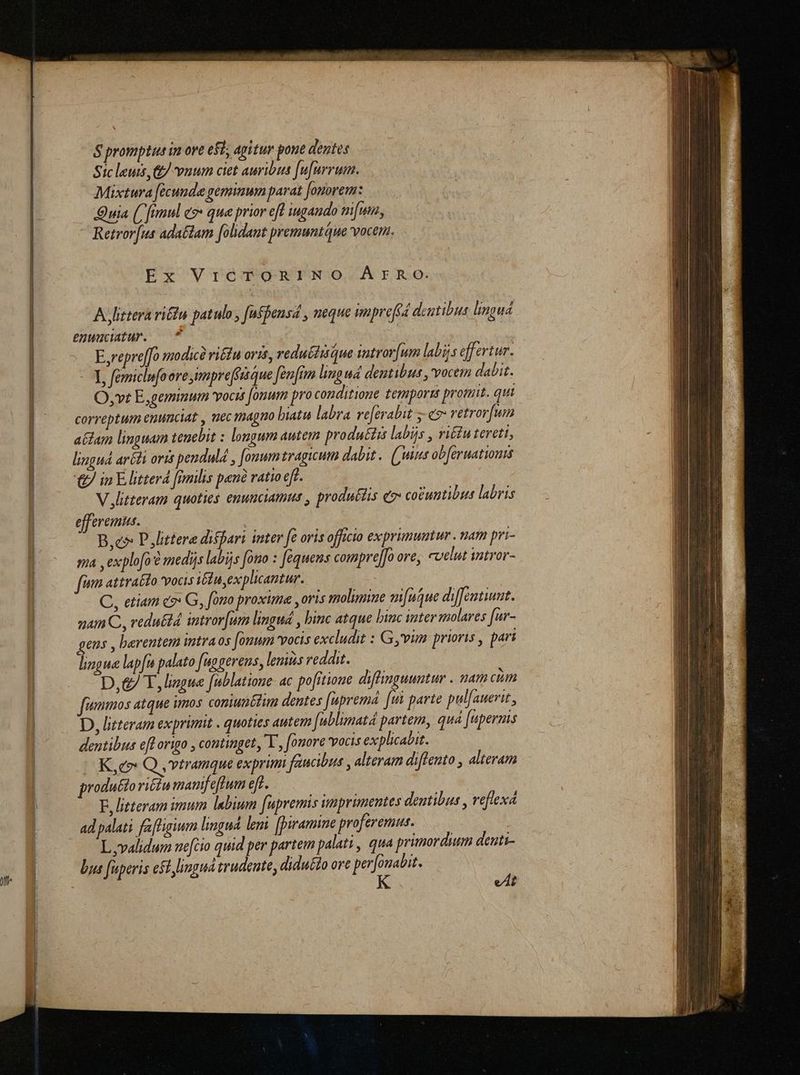 S promptus in ore est, agitur pone dentes
Sic leuis, & vnum ciet auribus ſuſurrum.
Mixtura fecunde geminum parat ſonorem:
Quia (ſimul & que prior eſt iugando niſum,
Retrorſus adactam ſolidant premuntque vocem.
Ex VICTORINO AFRO.
A, littera rictu patulo, ſuſpensâ, neque impreſſâ dentibus linguâ
enunciatur.
E, repreſſo modicè rictu oris, reductisque introrſum labijs effertur.
I, ſemicluſo ore, impreſſisque ſenſim linguâ dentibus, vocem dabit.
O, vt E, geminum vocis ſonum pro conditione temporis promit. qui
correptum enunciat, nec magno hiatu labra reſerabit; & retrorſum
actam linguam tenebit : longum autem productis labijs, rictu tereti,
linguâ arcti oris pendulâ, ſonum tragicum dabit. Cuius obſeruationis
& in E litterâ ſimilis penè ratio eſt.
V, litteram quoties enunciamus, productis & coëuntibus labris
efferemus.
B, & P, litterae diſpari inter ſe oris officio exprimuntur. nam pri-
ma, exploſo è medijs labijs ſono : ſequens compreſſo ore, velut intror-
ſum attracto vocis ictu, explicantur.
C, etiam & G, ſono proximae, oris molimine niſuque diſſentiunt.
nam C, reductâ introrſum linguâ, hinc atque hinc inter molares ſur-
gens, haerentem intra os ſonum vocis excludit : G, vim prioris, pari
linguae lapſu palato ſuggerens, leniùs reddit.
D, & T, linguae ſublatione ac poſitione diſtinguuntur. nam cùm
ſummos atque imos coniunctim dentes ſupremâ ſui parte pulſauerit,
D, litteram exprimit. quoties autem ſublimatâ partem, quâ ſupernis
dentibus eſt origo, continget, T, ſonore vocis explicabit.
K, & Q, vtramque exprimi faucibus, alteram diſtento, alteram
producto rictu manifeſtum eſt.
F, litteram imum labium ſupremis imprimentes dentibus, reflexâ
ad palati faſtigium linguâ leni ſpiramine proferemus.
L, validum neſcio quid per partem palati, qua primordium denti-
bus ſuperis est, linguâ trudente, diducto ore perſonabit.
K At